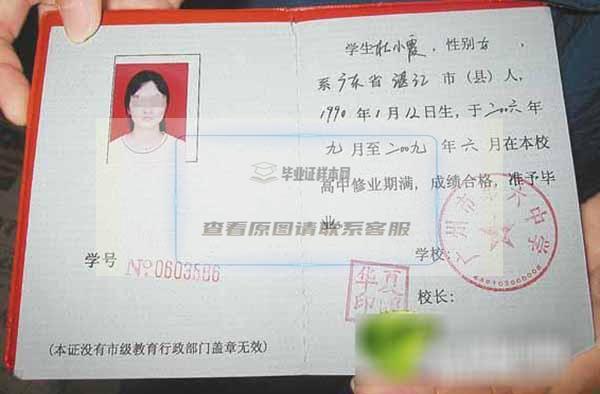 学生杜小霞，性别女，
系广东省湛江市（县）人，
1990年1月12日生，于二〇〇六年
九月至二〇〇九年六月在本校
高中修业期满，成绩合格，准予毕
业
毕业证样本网
查看原图请联系客服
学号 №0603586
学校：
校长：
(本证没有市级教育行政部门盖章无效)